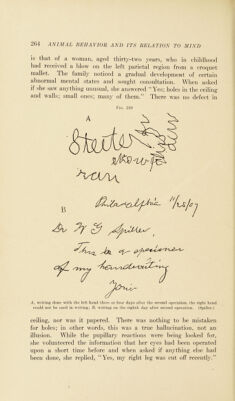 264 ANIMAL BEHAVIOR AND ITS RELATION TO MIND
is that of a woman, aged thirty-two years, who in childhood
had received a blow on the left parietal region from a croquet
mallet. The family noticed a gradual development of certain
abnormal mental states and sought consultation. When asked
if she saw anything unusual, she answered "Yes; holes in the ceiling
and walls; small ones; many of them." There was no defect in
A
ran
Philadelphia 11/28/07
B
Dr W G Spiller,
This is a specimen
of my handwriting
A, writing done with the left hand three or four days after the second operation, the right hand
could not be used in writing; B, writing on the eighth day after second operation. (Spiller.)
ceiling, nor was it papered. There was nothing to be mistaken
for holes; in other words, this was a true hallucination, not an
illusion. While the pupillary reactions were being looked for,
she volunteered the information that her eyes had been operated
upon a short time before and when asked if anything else had
been done, she replied, "Yes, my right leg was cut off recently."